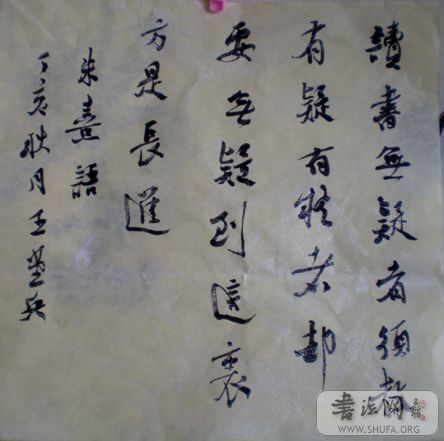 讀書無疑者須教
有疑有疑者却
要無疑到這裏
方是長進
朱熹語
丁亥秋月王
書法网
WWW.SHUFA.ORG